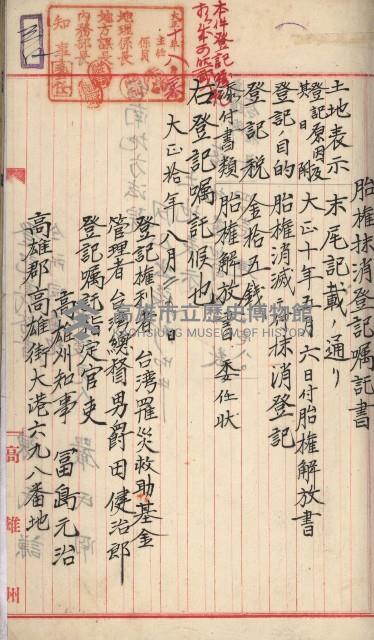 胎權抹消登記嘱託書
土地表示 末尾記載ノ通リ
登記原因及其日附 大正十年五月六日付胎權解放書
登記ノ目的 胎權消滅ノ抹消登記
登記税 金拾五錢
添付書類 胎權解放書 委任状
右登記嘱託候也
大正拾年八月
登記權利者 台湾罹災救助基金
管理者 台湾總督男爵田健治郎
登記嘱託指定官吏
高雄州知事 冨島元治
高雄郡高雄街大港六九八番地
高雄州
本件登記
大正十年八
主任
係員
地理係長
地方課長
内務部長
知事
高雄市立歷史博物館
KAOHSIUNG MUSEUM OF HISTORY